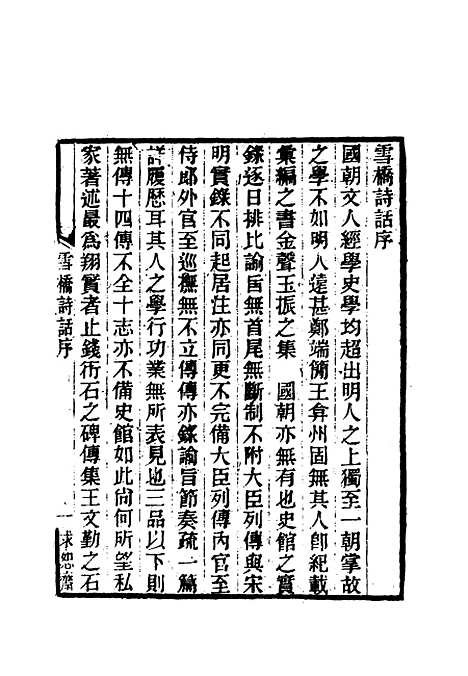 雪橋詩話序
國朝文人經學史學均超出明人之上獨至一朝掌故
之學不如明人遠甚鄭端簡王弇州固無其人卽紀載
彙編之書金聲玉振之集　國朝亦無有也史館之實
錄逐日排比諭旨無首尾無斷制不附大臣列傳與宋
明實錄不同起居注亦同更不完備大臣列傳內官至
侍郎外官至巡撫無不立傳傳亦錄諭旨節奏疏一篇
詳履歷耳其人之學行功業無所表見也三品以下則
無傳十四傳不全十志亦不備史館如此尚何所望私
家著述最爲翔實者止錢衎石之碑傳集王文勤之石
雪橋詩話序
一
求恕齋